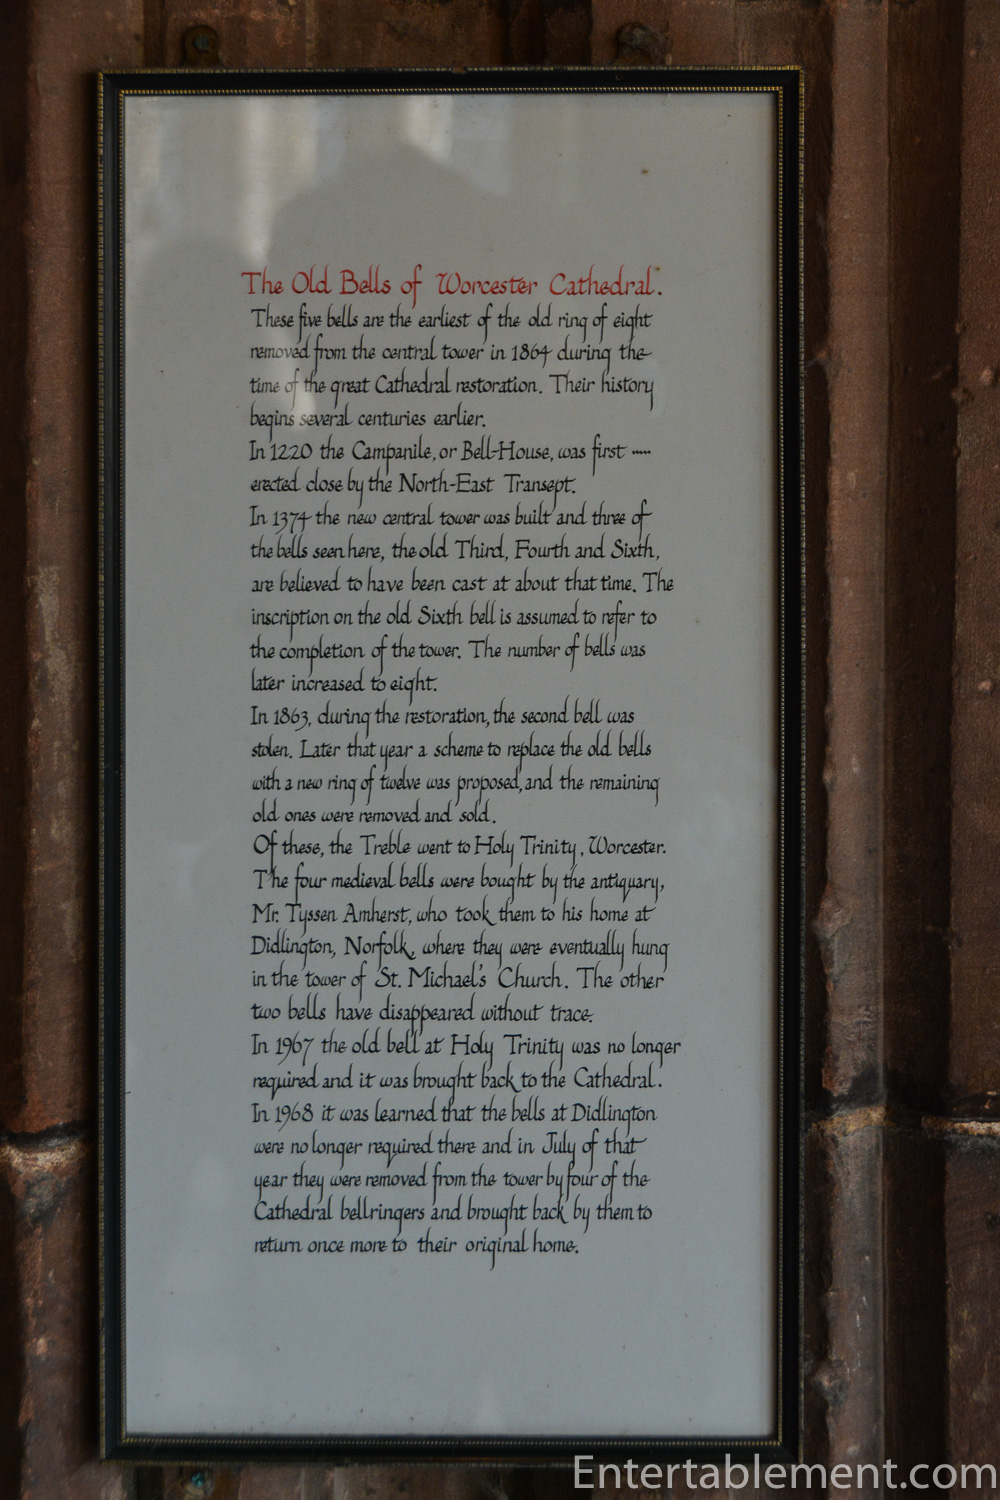 The Old Bells of Worcester Cathedral.
These five bells are the earliest of the old ring of eight
removed from the central tower in 1864 during the
time of the great Cathedral restoration. Their history
begins several centuries earlier.
In 1220 the Campanile, or Bell-House, was first
erected close by the North-East Transept.
In 1374 the new central tower was built and three of
the bells seen here, the old Third, Fourth and Sixth,
are believed to have been cast at about that time. The
inscription on the old Sixth bell is assumed to refer to
the completion of the tower. The number of bells was
later increased to eight.
In 1863, during the restoration, the second bell was
stolen. Later that year a scheme to replace the old bells
with a new ring of twelve was proposed, and the remaining
old ones were removed and sold.
Of these, the Treble went to Holy Trinity, Worcester.
The four medieval bells were bought by the antiquary,
Mr. Tyssen Amherst, who took them to his home at
Didlington, Norfolk, where they were eventually hung
in the tower of St. Michael's Church. The other
two bells have disappeared without trace.
In 1967 the old bell at Holy Trinity was no longer
required and it was brought back to the Cathedral.
In 1968 it was learned that the bells at Didlington
were no longer required there and in July of that
year they were removed from the tower by four of the
Cathedral bellringers and brought back by them to
return once more to their original home.
Entertablement.com